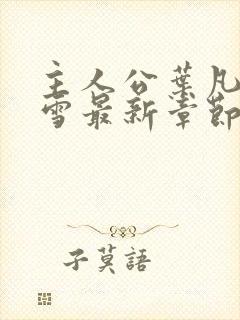 主人公葉凡
雪最新章節
子莫語